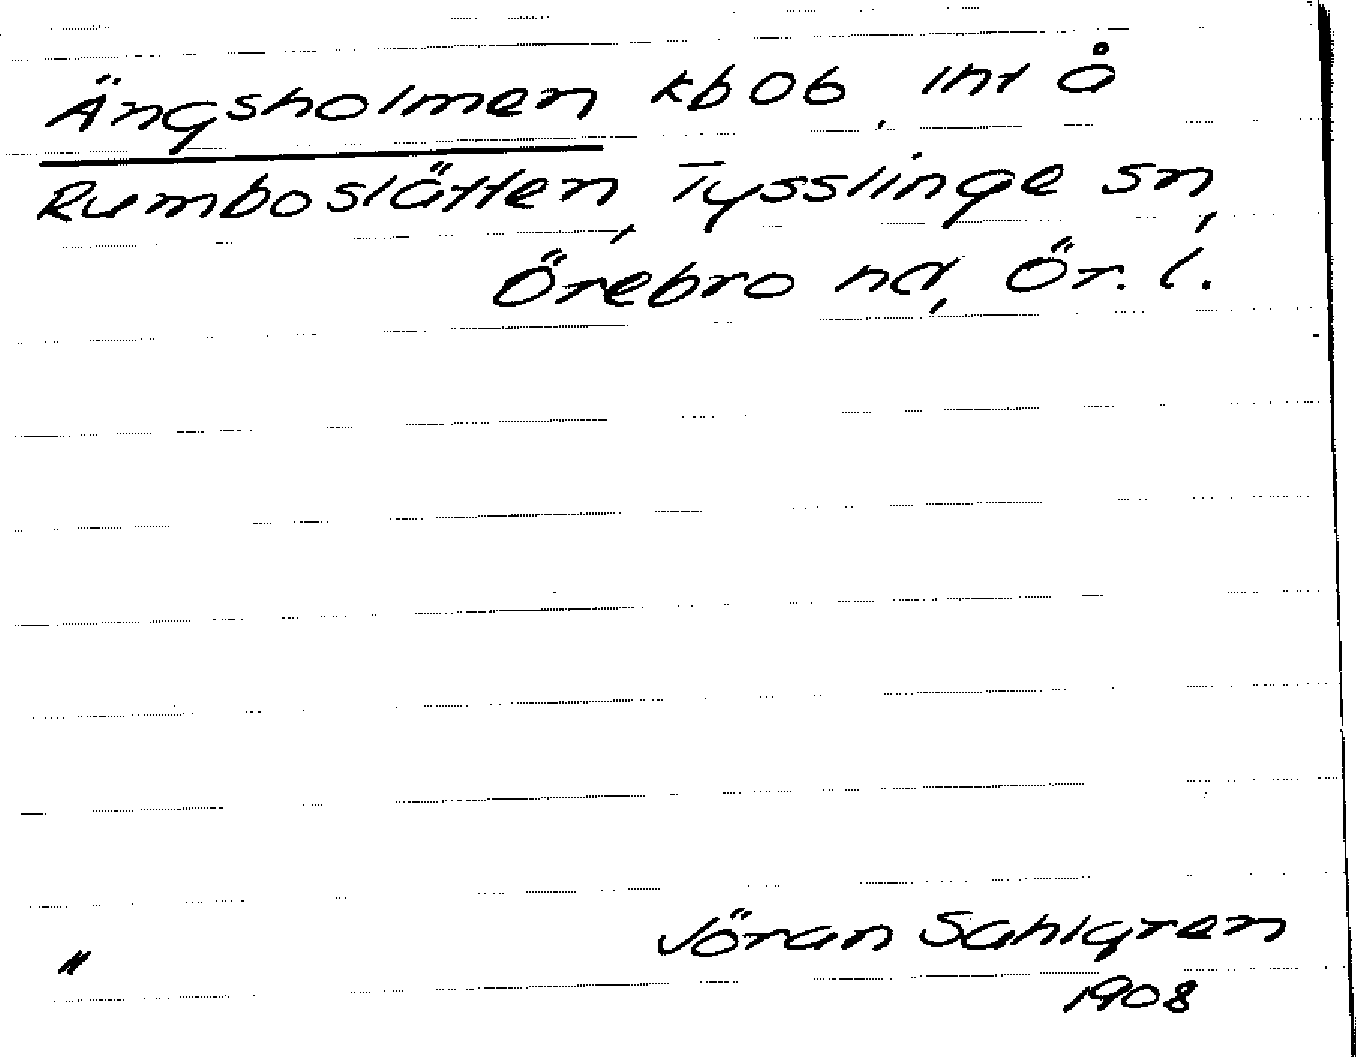 Ängsholmen kb06, int å
Rumboslätten, Tysslinge sn,
Örebro hd, Ör. l.
Jöran Sahlgren
"
1908